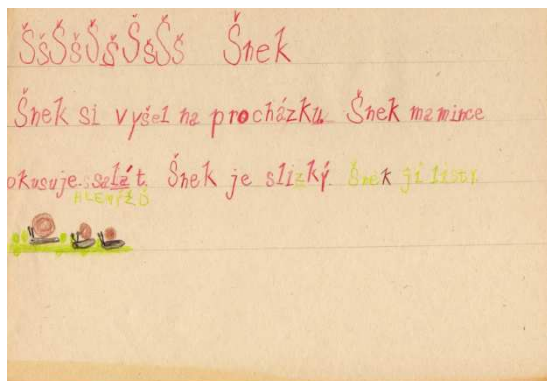 ŠšŠšŠšŠšŠš Šnek
Šnek si vyšel na procházku. Šnek mamince
okusuje salát. Šnek je slizký. Šnek jí listy
HLEMÝŽĎ